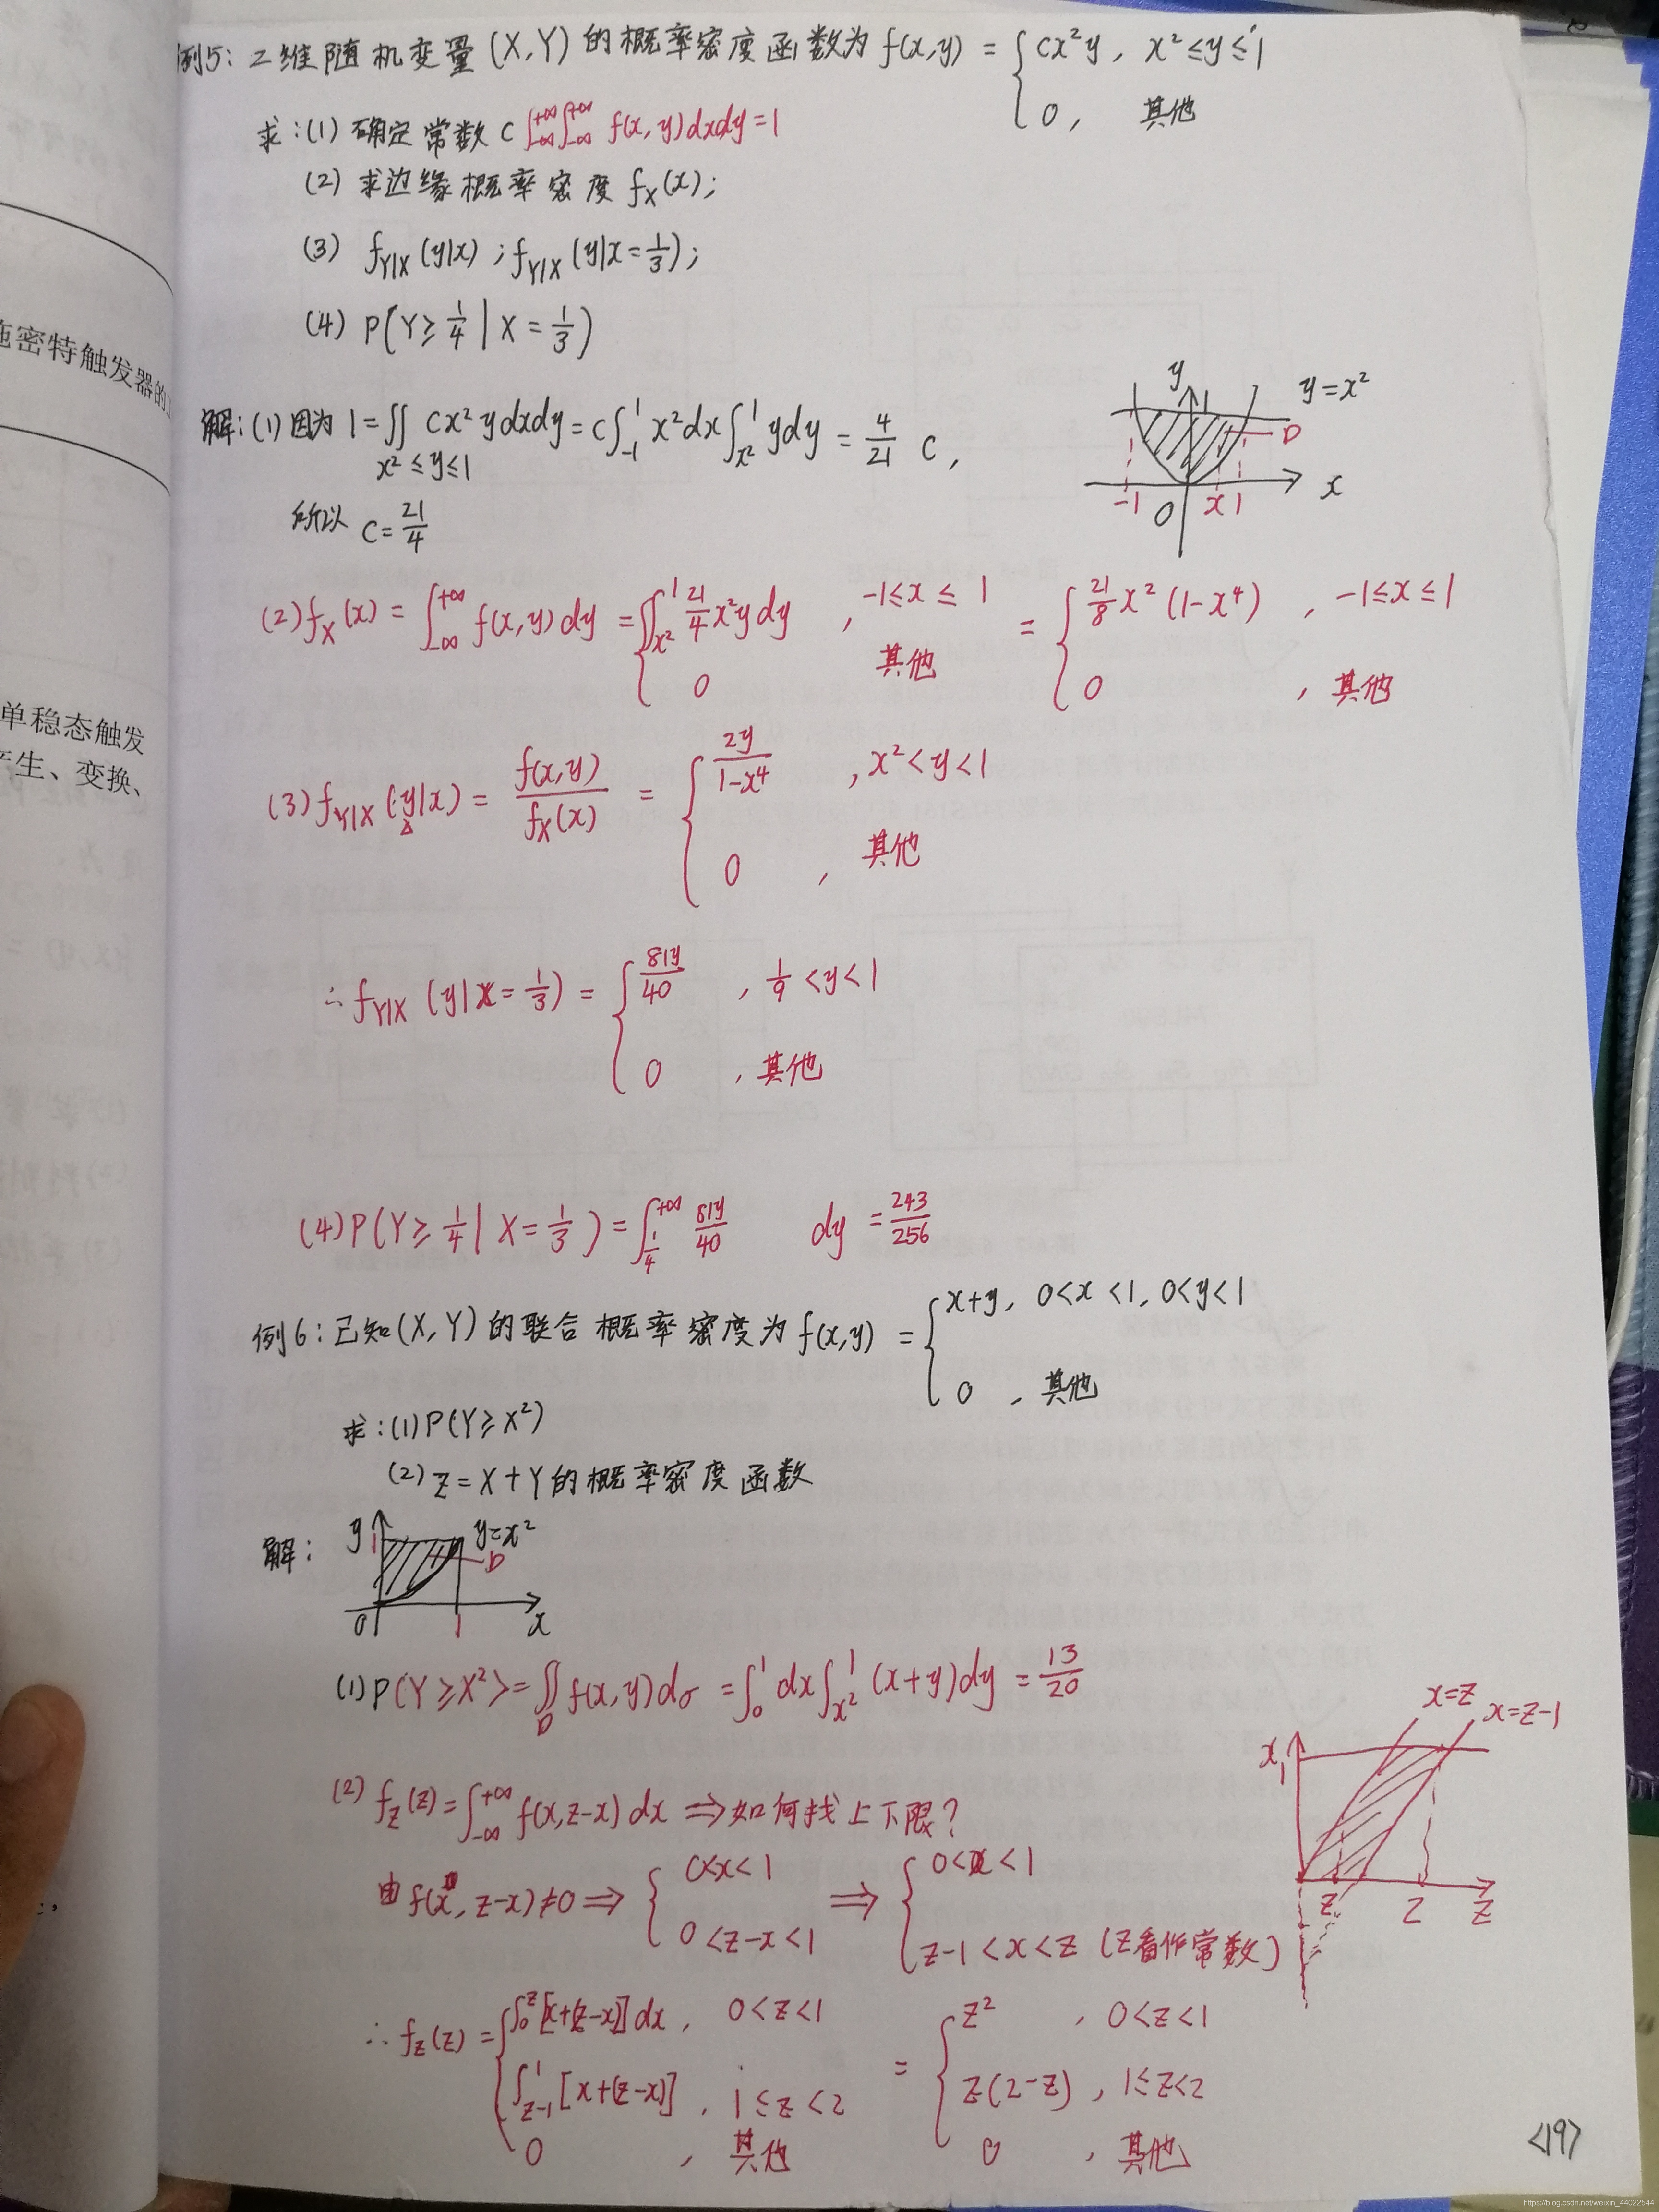 例5: 二维随机变量(X,Y)的概率密度函数为 f(x,y) = { cx²y, x²≤y≤1
0, 其他
求:(1) 确定常数 C ∫_{-∞}^{+∞}∫_{-∞}^{+∞} f(x,y)dxdy=1
(2) 求边缘概率密度 f_X(x);
(3) f_{Y|X}(y|x); f_{Y|X}(y|x=1/3);
(4) P(Y≥1/4 | X=1/3)
解:(1) 因为 1=∬_{x²≤y≤1} cx²ydxdy = c∫_{-1}^{1} x²dx∫_{x²}^{1} ydy = 4/21 c,
所以 c=21/4
y
y=x²
1
D
-1 O x 1 x
(2) f_X(x) = ∫_{-∞}^{+∞} f(x,y)dy = { ∫_{x²}^{1} 21/4 x²ydy, -1≤x≤1 = { 21/8 x²(1-x⁴), -1≤x≤1
0 其他 0, 其他
(3) f_{Y|X}(y|x) = f(x,y)/f_X(x) = { 2y/(1-x⁴), x²<y<1
0, 其他
∴ f_{Y|X}(y|x=1/3) = { 81y/40, 1/9<y<1
0, 其他
(4) P(Y≥1/4 | X=1/3) = ∫_{1/4}^{+∞} 81y/40 dy = 243/256
例6: 已知(X,Y)的联合概率密度为 f(x,y) = { x+y, 0<x<1, 0<y<1
0, 其他
求:(1) P(Y≥X²)
(2) Z=X+Y的概率密度函数
解:
y
1
y=x²
D
0 1 x
(1) P(Y≥X²) = ∬_D f(x,y)dσ = ∫_0^1 dx∫_{x²}^1 (x+y)dy = 13/20
(2) f_Z(z) = ∫_{-∞}^{+∞} f(x,z-x)dx ⇒ 如何找上下限?
由 f(x, z-x)≠0 ⇒ { 0<x<1 ⇒ { 0<x<1
0<z-x<1 z-1<x<z (z看作常数)
x=z
x=z-1
x
1
z 2 z
∴ f_Z(z) = { ∫_0^z [x+(z-x)]dx, 0<z<1 = { z², 0<z<1
∫_{z-1}^1 [x+(z-x)], 1≤z<2 z(2-z), 1≤z<2
0, 其他 0, 其他
<19>
施密特触发器的
单稳态触发
产生、变换、
https://blog.csdn.net/weixin_44022544